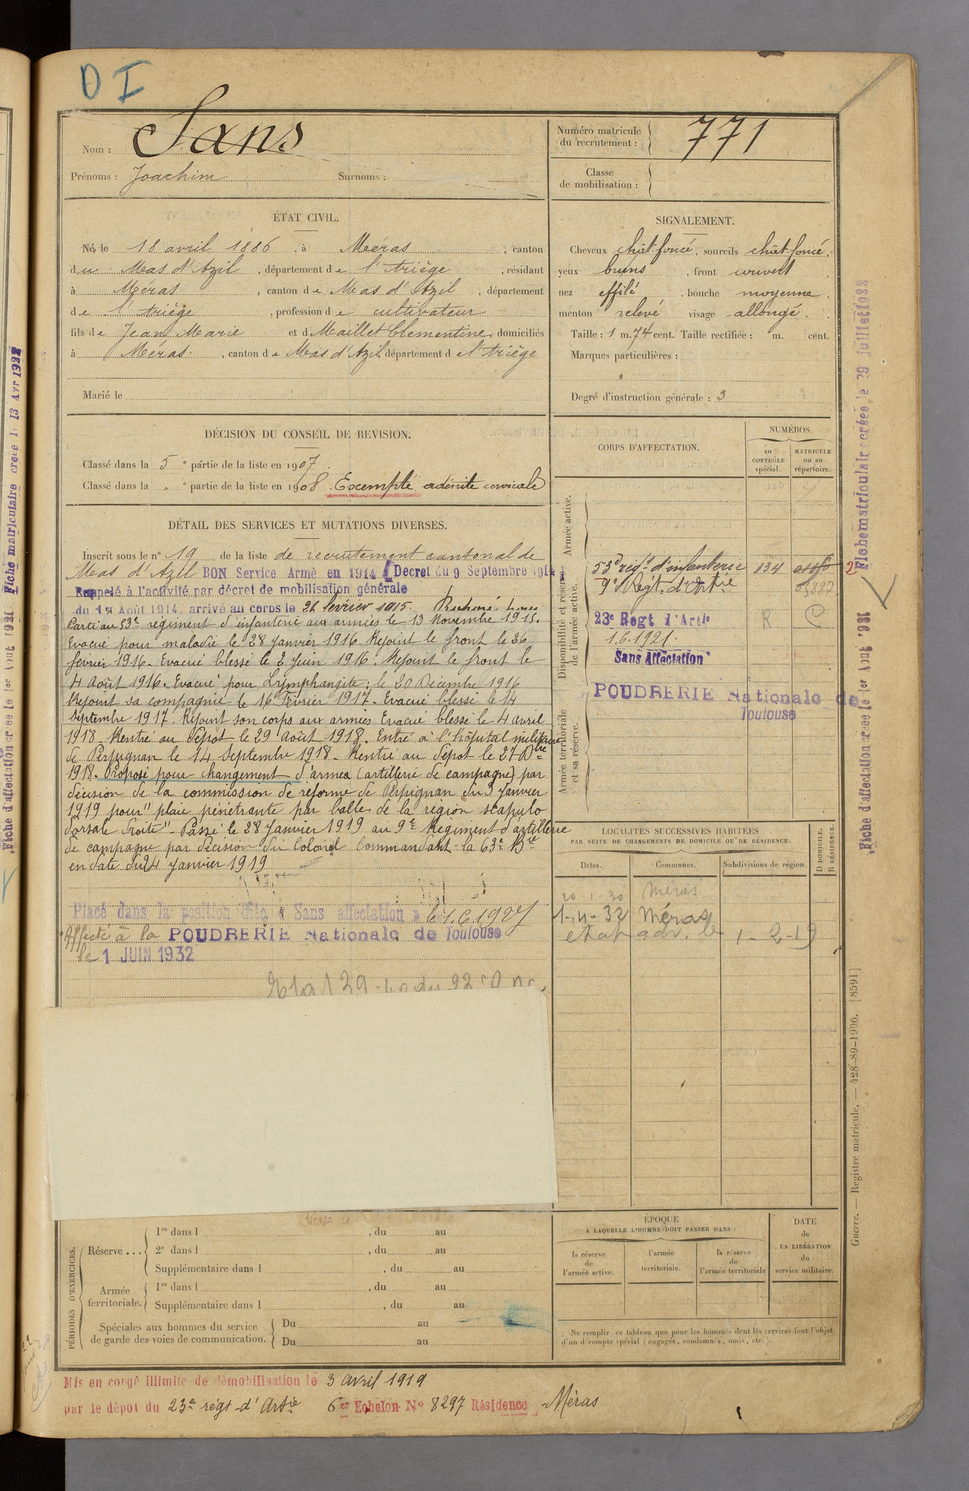 D I
Nom : Sans
Prénoms : Joachim Surnoms :
Numéro matricule
du recrutement : 771
Classe
de mobilisation :
ÉTAT CIVIL.
Né le 18 avril 1886, à Méras, canton
du Mas d'Azil, département de l'Ariège, résidant
à Méras, canton de Mas d'Azil, département
de l'Ariège, profession de cultivateur
fils de Jean Marie et de Maillet Clementine, domiciliés
à Méras, canton de Mas d'Azil département de l'Ariège
Marié le
SIGNALEMENT.
Cheveux chât. foncé, sourcils chât. foncé,
yeux bruns, front couvert
nez effilé, bouche moyenne,
menton relevé visage allongé.
Taille : 1 m. 74 cent. Taille rectifiée : m. cent.
Marques particulières :
Degré d'instruction générale : 3
DÉCISION DU CONSEIL DE REVISION.
Classé dans la 5e partie de la liste en 1907.
Classé dans la " e partie de la liste en 1908. Exempté adénite cervicale
DÉTAIL DES SERVICES ET MUTATIONS DIVERSES.
Inscrit sous le n° 19 de la liste de recrutement cantonal de
Mas d'Azil BON Service Armé en 1914 (Decret du 9 Septembre 1914
Rappelé à l'activité par décret de mobilisation générale
du 1er Août 1914. arrivé au corps le 26 février 1915.
Parti au 53e régiment d'infanterie aux armées le 13 Novembre 1915.
Evacué pour maladie le 28 Janvier 1916. Rejoint le front le 26
février 1916. Evacué blessé le 2 Juin 1916. Rejoint le front le
4 Août 1916. Evacué pour Lymphangite : le 20 Décembre 1916
Rejoint sa compagnie le 16 Février 1917. Evacué blessé le 14
Septembre 1917. Rejoint son corps aux armées Evacué blessé le 4 avril
1918. Rentré au Dépot le 29 Août 1918. Entré à l'hôpital militaire
de Perpignan le 14 Septembre 1918. Rentré au Dépot le 27 Dbre
1918. Proposé pour changement d'armes (artillerie de campagne) par
décision de la commission de réforme de Perpignan du 3 Janvier
1919 pour "plaie pénétrante par balles de la région scapulo
dorsale droite". Passé le 28 Janvier 1919 au 9e Régiment d'artillerie
de campagne par décision du Colonel Commandant la 63e Bde
en date du 24 Janvier 1919
Placé dans la position dite « Sans affectation » le 1.6.1927
Affecté à la POUDRERIE Nationale de Toulouse
le 1 JUIN 1932
CORPS D'AFFECTATION.
NUMÉROS
au
CONTRÔLE
spécial.
MATRICULE
ou au
répertoire.
Armée active.
Disponibilité et réserve
de l'armée active.
Armée territoriale
et sa réserve.
53e régt d'infanterie 124
9e Régt d'Artie
23e Regt d'Artie R C
1.6.1921.
Sans Affectation
POUDRERIE Nationale de
Toulouse
LOCALITÉS SUCCESSIVES HABITÉES
PAR SUITE DE CHANGEMENTS DE DOMICILE OU DE RÉSIDENCE.
Dates. Communes. Subdivisions de région.
D DOMICILE.
R RÉSIDENCE.
Méras
1-4-32 Méras
PÉRIODES D'EXERCICES.
Réserve . . .
1re dans l , du au
2e dans l , du au
Supplémentaire dans l , du au
Armée
territoriale.
1re dans l , du au
Supplémentaire dans l , du au
Spéciales aux hommes du service
de garde des voies de communication.
Du au
Du au
ÉPOQUE
À LAQUELLE L'HOMME DOIT PASSER DANS :
la réserve
de
l'armée active.
l'armée
territoriale.
la réserve
de
l'armée territoriale
DATE
de
LA LIBÉRATION
du
service militaire.
Ne remplir ce tableau que pour les hommes dont les services font l'objet
d'un décompte spécial (engagés, condamnés, omis, etc.).
Mis en congé illimité de démobilisation le 3 avril 1919
par le dépot du 23e régt d'Artie 6e Echelon N° 8297 Résidence Méras
Guerre. — Registre matricule. — 428-89-1906. [8591]
Fiche matriculaire créée le 29 juillet 1922